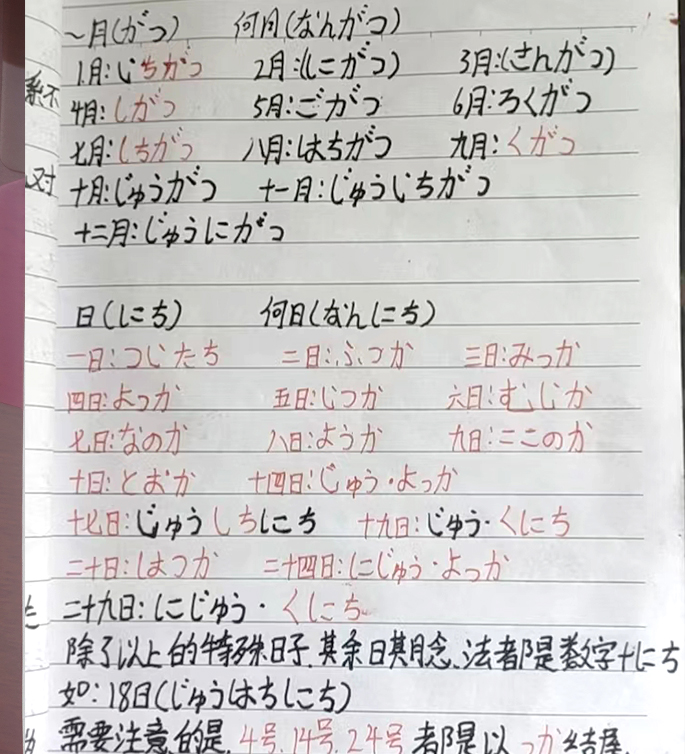 ～月(がつ) 何月(なんがつ)
1月:いちがつ 2月:(にがつ) 3月:(さんがつ)
4月:しがつ 5月:ごがつ 6月:ろくがつ
七月:しちがつ 八月:はちがつ 九月:くがつ
十月:じゅうがつ 十一月:じゅういちがつ
十二月:じゅうにがつ
日(にち) 何日(なんにち)
一日:ついたち 二日:ふつか 三日:みっか
四日:よっか 五日:いつか 六日:むいか
七日:なのか 八日:ようか 九日:ここのか
十日:とおか 十四日:じゅう・よっか
十七日:じゅうしちにち 十九日:じゅう・くにち
二十日:はつか 二十四日:にじゅう・よっか
二十九日:にじゅう・くにち
除了以上的特殊日子,其余日期念法都是数字+にち
如:18日(じゅうはちにち)
需要注意的是,4号,14号,24号都是以っか结尾,